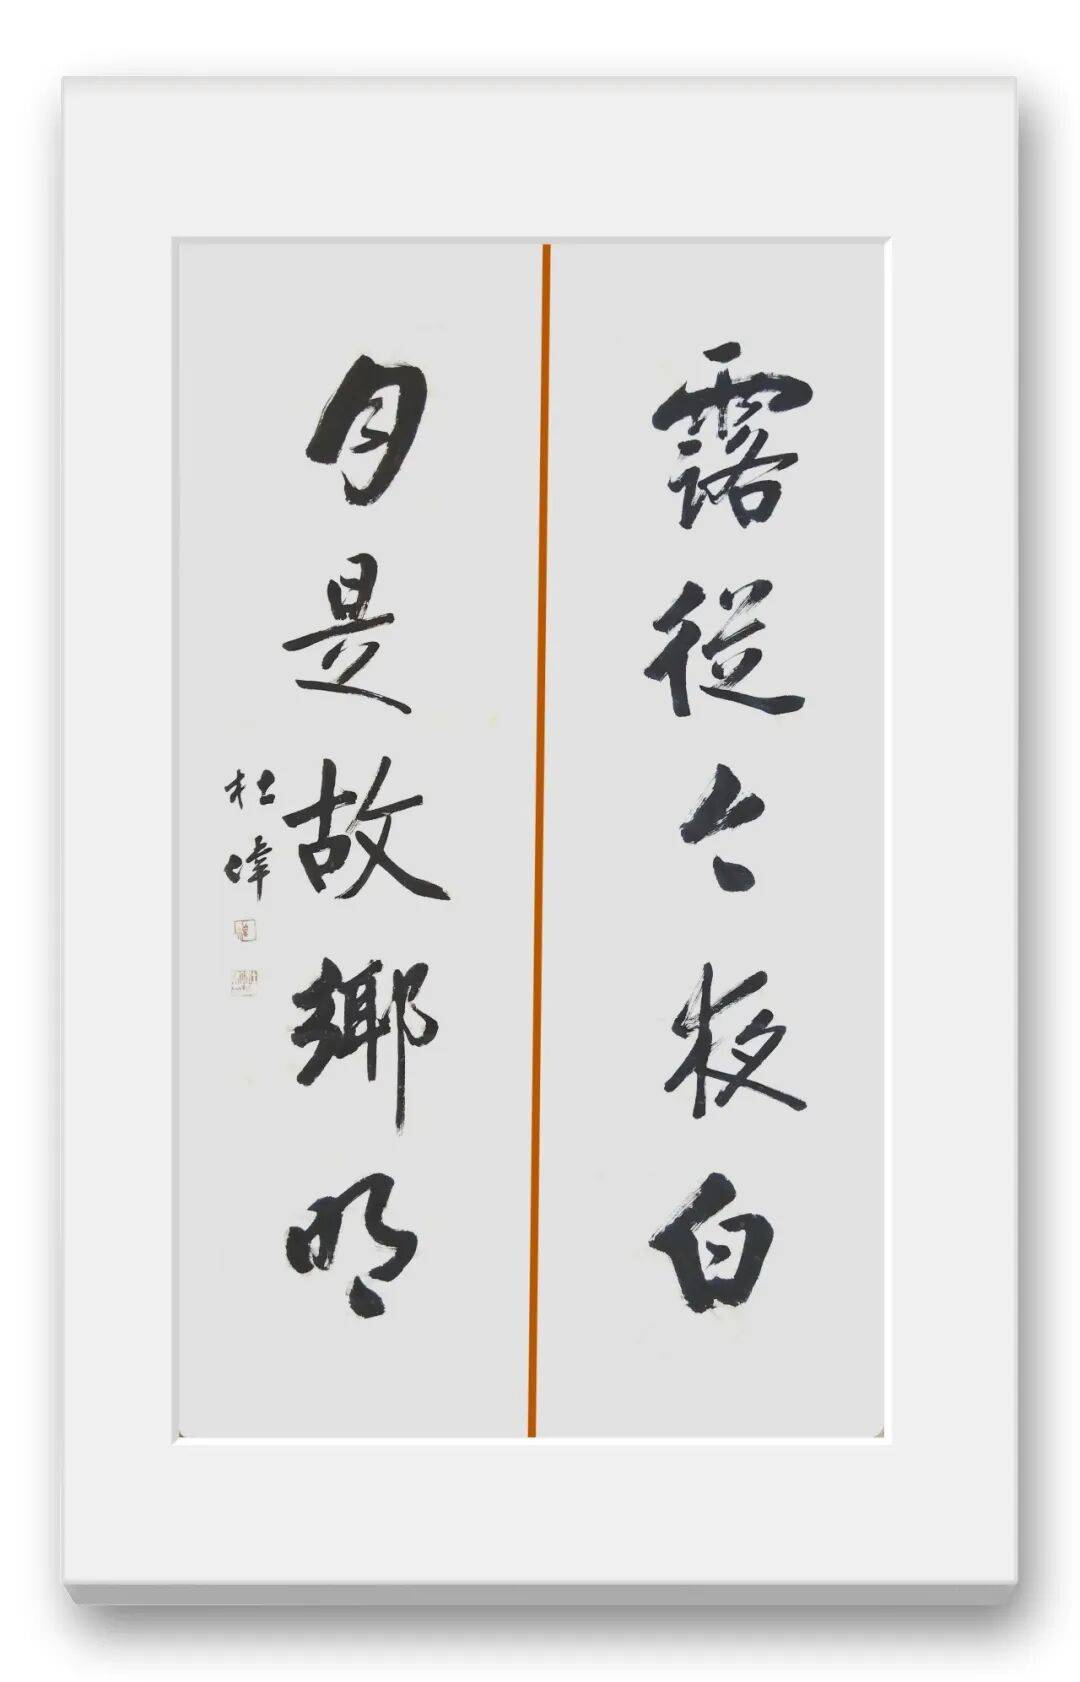 露從今夜白
月是故鄉明
杜偉